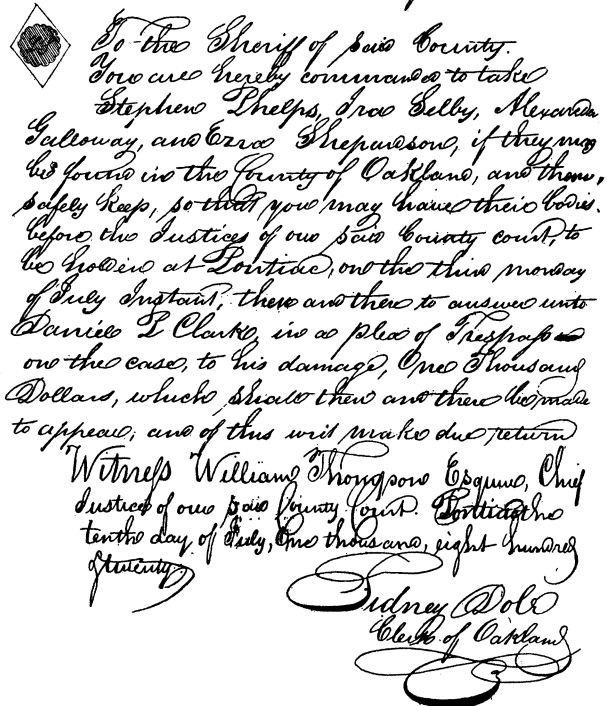 To the Sheriff of said County.
You are hereby commanded to take
Stephen Phelps, Ira Selby, Alexander
Galloway, and Ezra Shepardson, if they may
be found in the County of Oakland, and them,
safely keep, so that you may have their bodies
before the Justices of our said County court, to
be holden at Pontiac, on the third monday
of July Instant, then and there to answer unto
Daniel L Clark, in a plea of Trespass
on the case, to his damage, One Thousand
Dollars, which shall then and there be made
to appear; and of this writ make due return
Witness William Thompson Esquire, Chief
Justice of our said County Court. Pontiac the
tenth day of July, One thousand, eight hundred
& twenty.
Sidney Dole
Clerk of Oakland